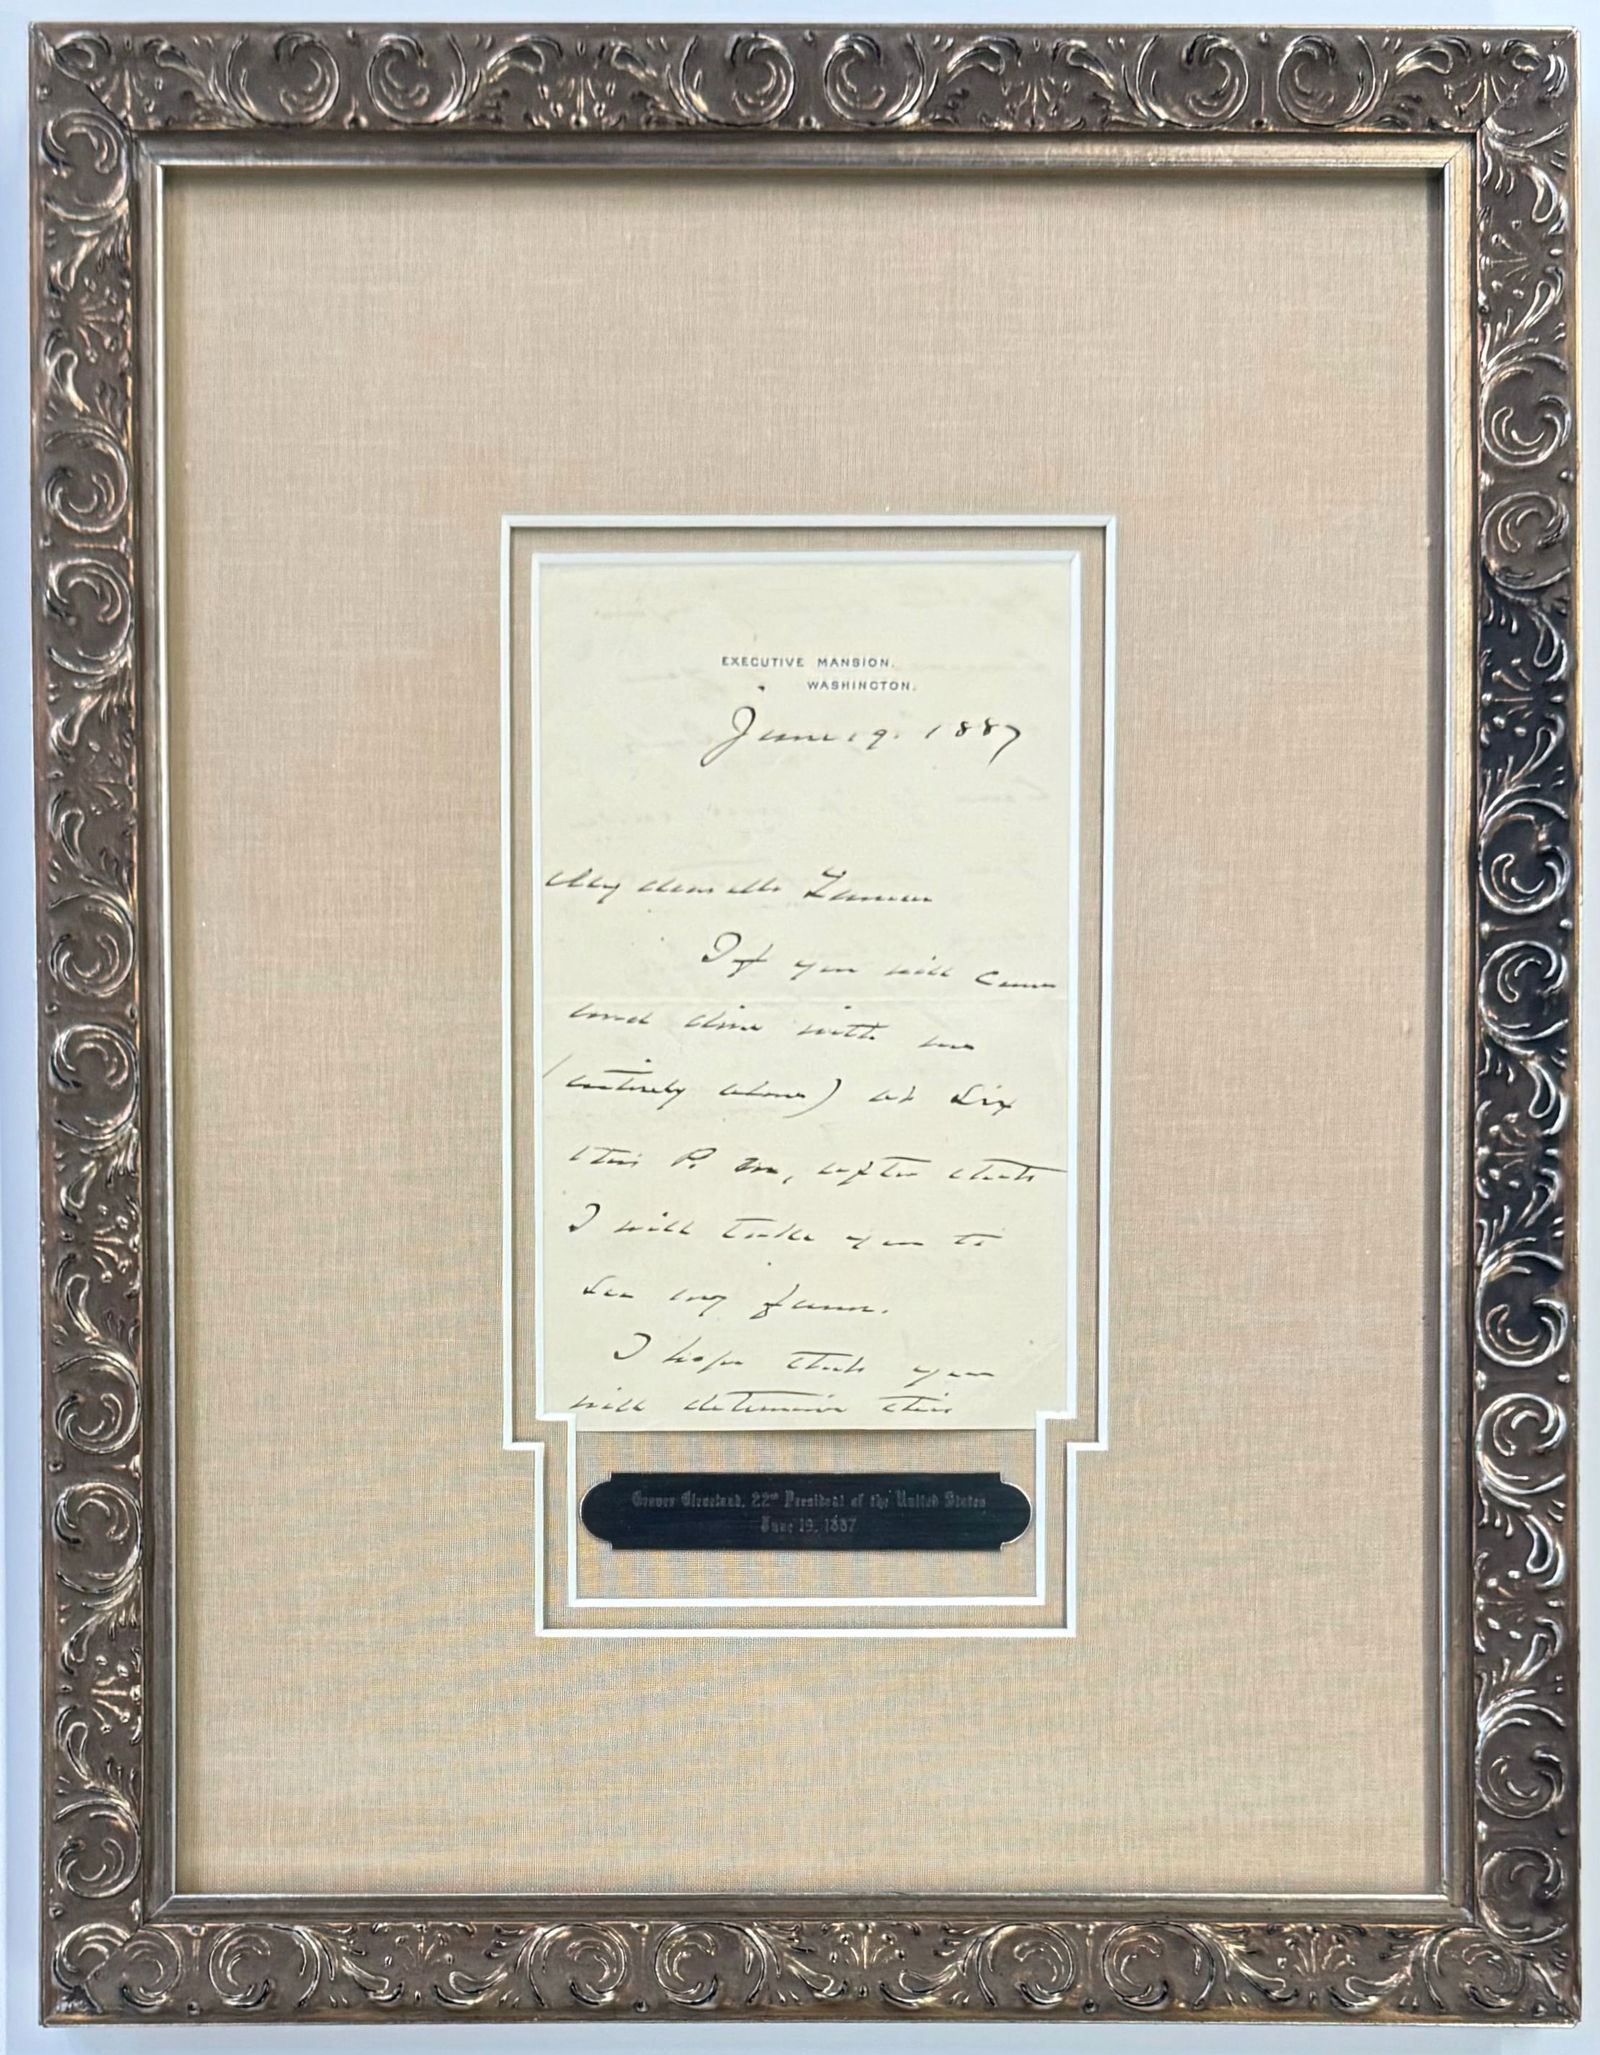 EXECUTIVE MANSION.
WASHINGTON.
June 19. 1887
My dear Mr
If you will come
and dine with me
(entirely alone) at six
this P. M., after that
I will take you to
see my farm.
I hope that you
will determine this
Grover Cleveland, 22nd President of the United States
June 19, 1887